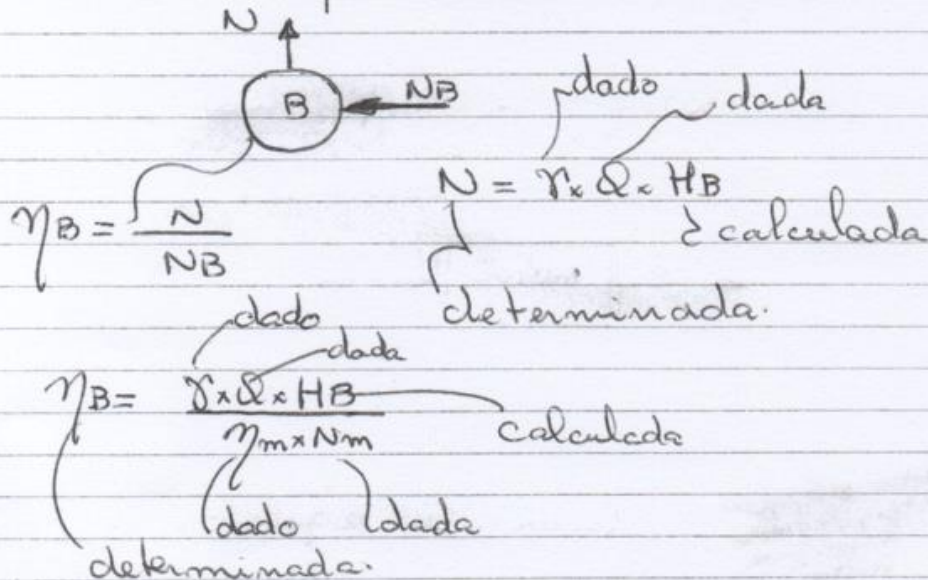 N
B NB
dado dada
N = γ × Q × HB
calculada
ηB = N / NB
determinada.
dado
dada
ηB = γ × Q × HB / ηm × Nm
calculada
dado dada
determinada.